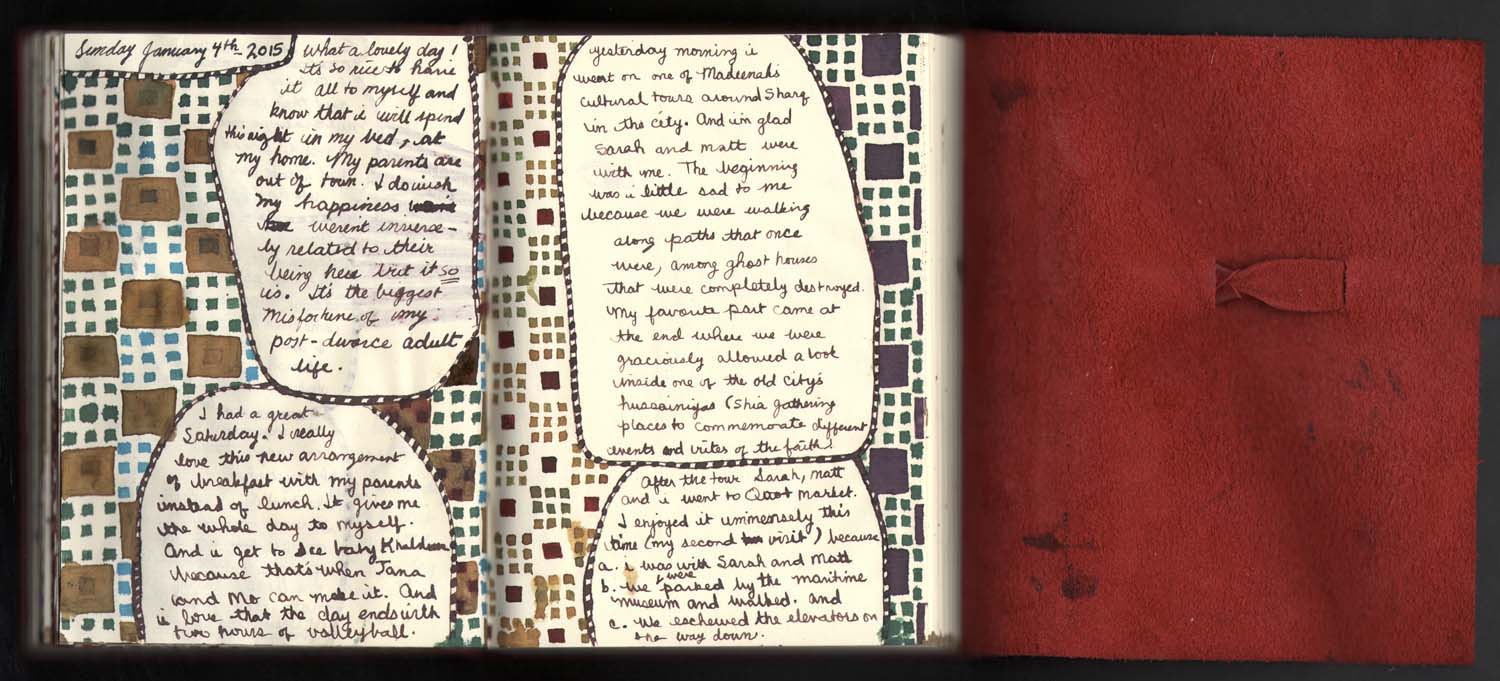 Sunday January 4th 2015
What a lovely day!
It's so nice to have
it all to myself and
know that i will spend
this night in my bed, at
my home. My parents are
out of town. I do wish
my happiness
werent inverse-
ly related to their
being here but it so
is. It's the biggest
misfortune of my
post-divorce adult
life.
I had a great
Saturday. I really
love this new arrangement
of breakfast with my parents
instead of lunch. It gives me
the whole day to myself.
And i get to see baby Khaldoon
because that's when Jana
and Mo can make it. And
i love that the day ends with
two hours of volleyball.
yesterday morning i
went on one of Madeenah's
cultural tours around Sharq
in the city. And i'm glad
Sarah and Matt were
with me. The beginning
was a little sad to me
because we were walking
along paths that once
were, among ghost houses
that were completely destroyed.
My favorite part came at
the end where we were
graciously allowed a look
inside one of the old city's
hussainiyas (Shia gathering
places to commemorate different
events and rites of the faith)
After the tour Sarah, Matt
and i went to Quot Market.
I enjoyed it immensely this
time (my second visit) because
a. i was with Sarah and Matt
b. we were parked by the maritime
museum and walked. and
c. we eschewed the elevators on
the way down.